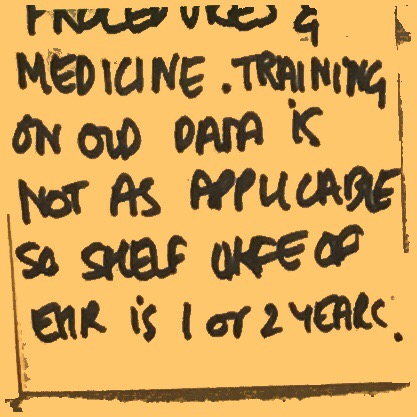 PROCEDURES &
MEDICINE. TRAINING
ON OLD DATA IS
NOT AS APPLICABLE
SO SHELF LIFE OF
EHR is 1 or 2 YEARS.